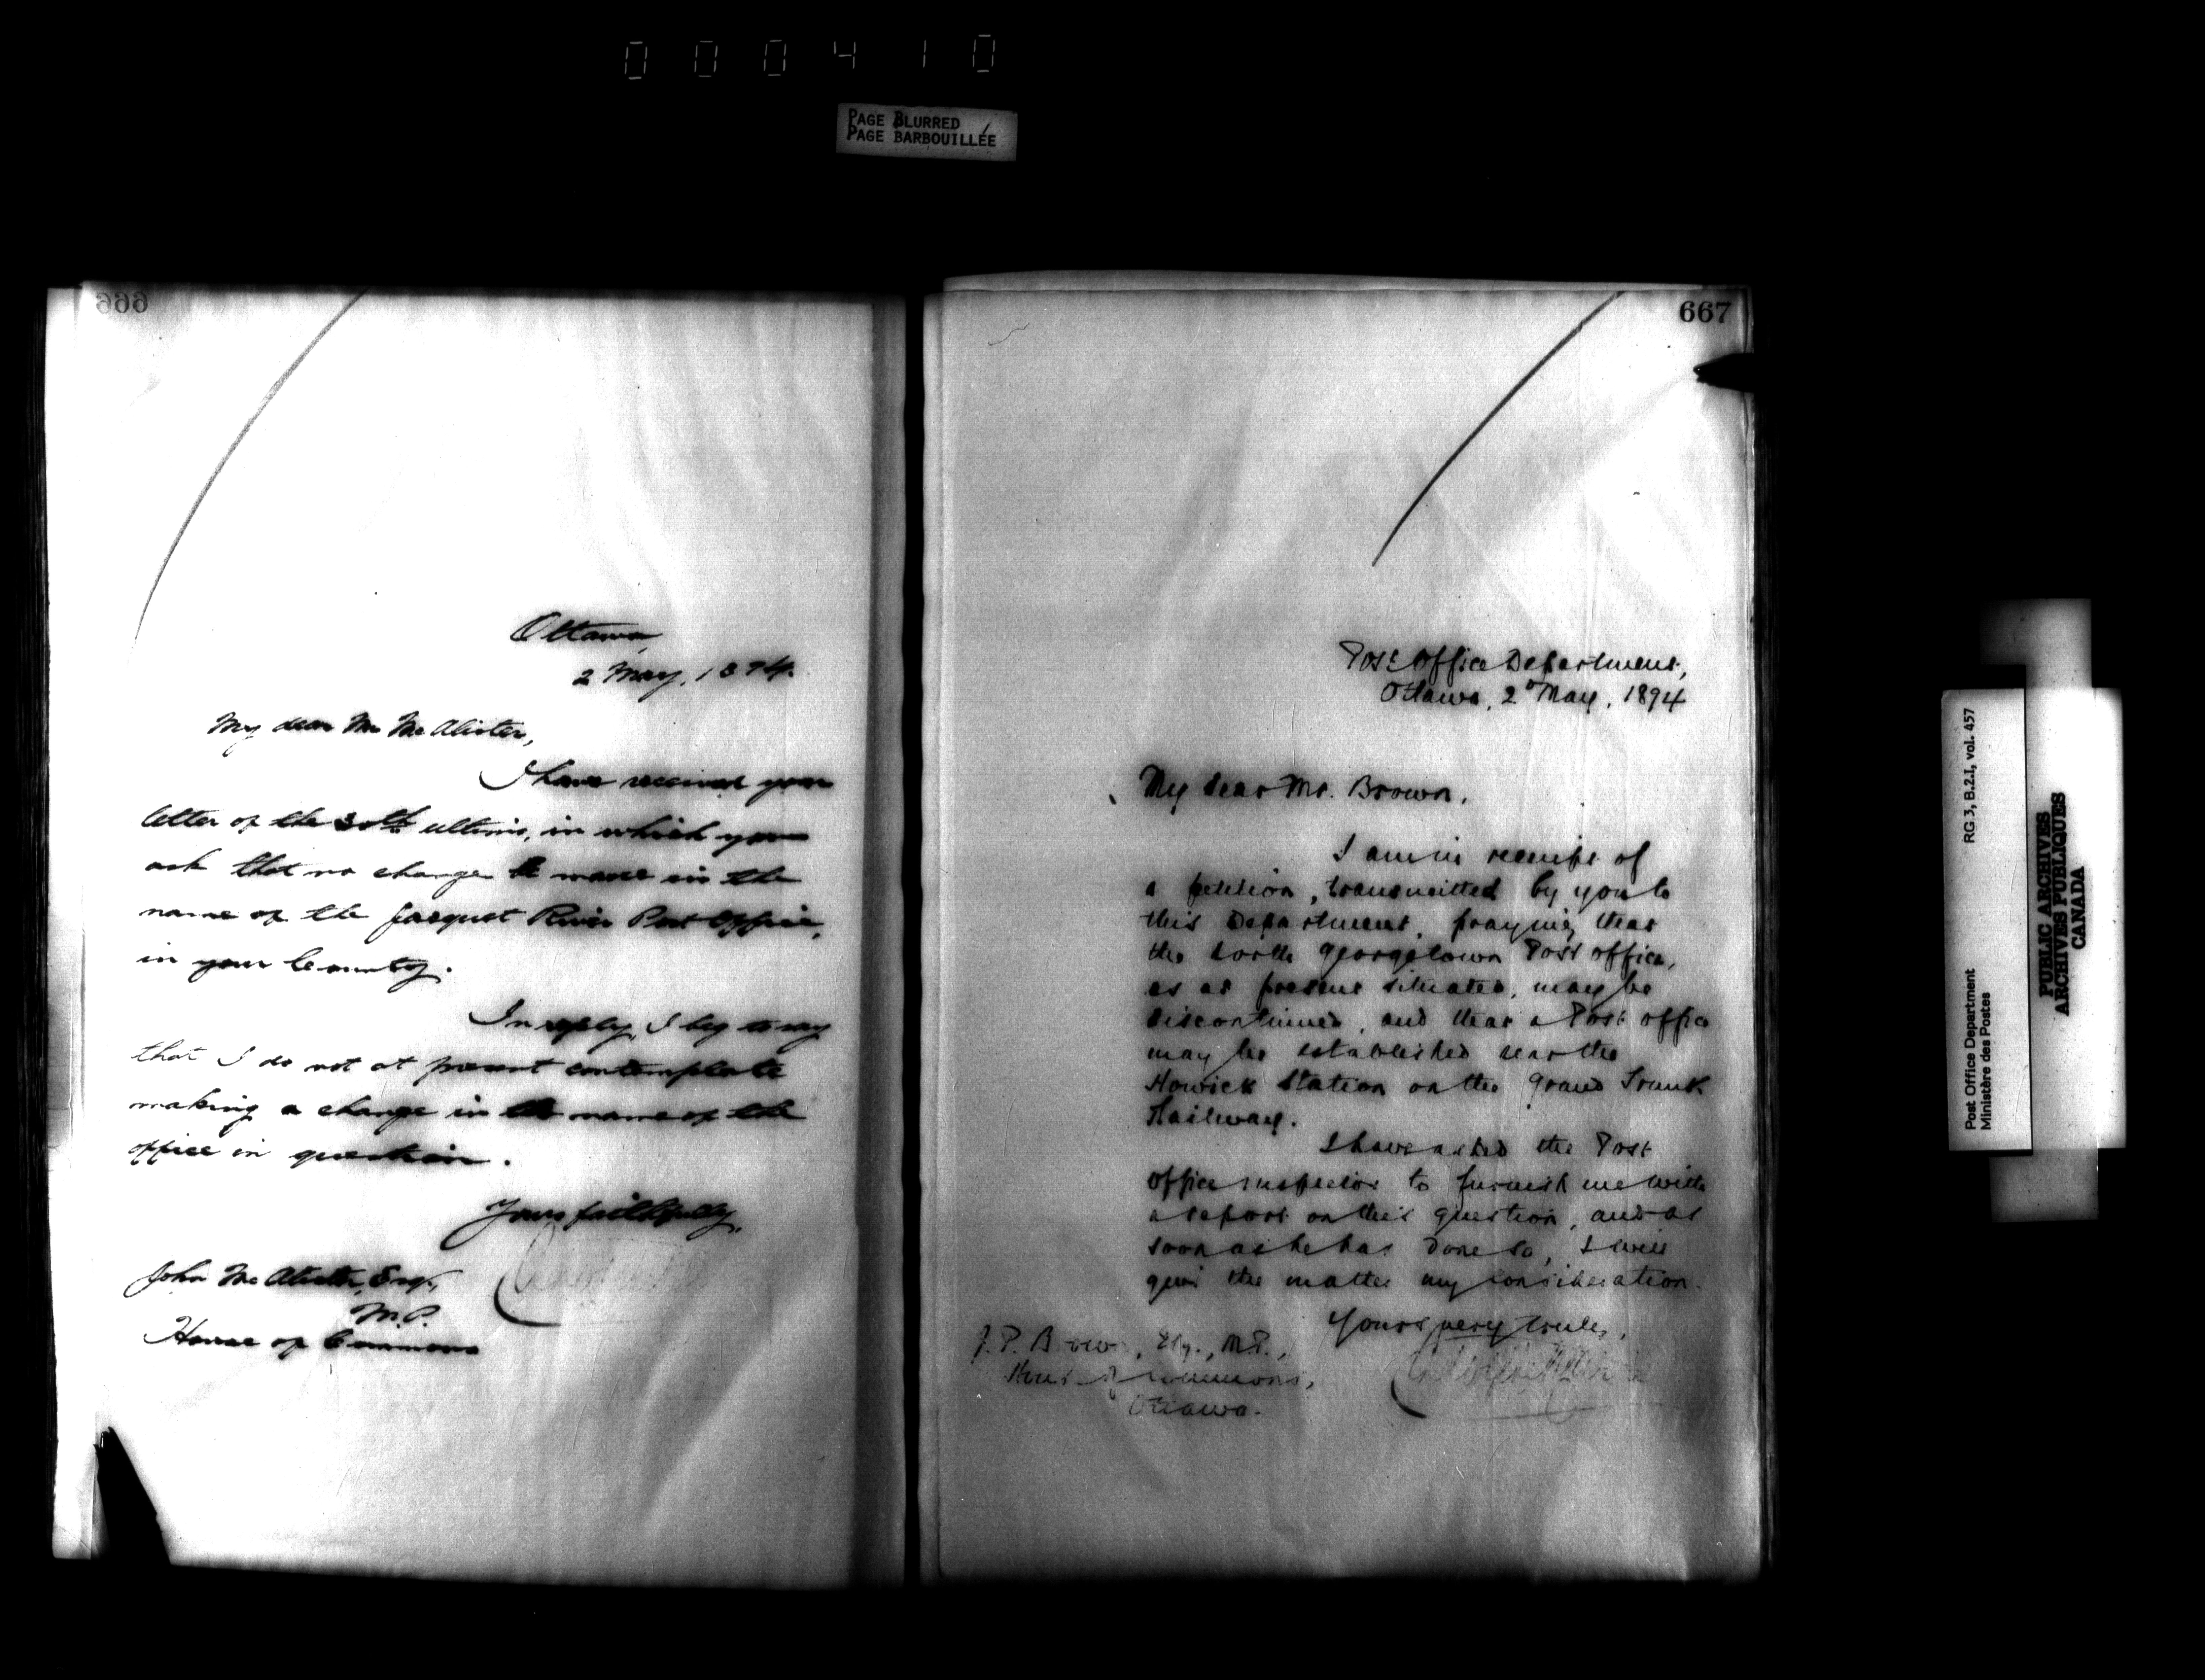 000410
PAGE BLURRED
PAGE BARBOUILLÉE
666
Ottawa,
2 May, 1894.
My dear Mr McAlister,
I have received your
letter of the 30th ultimo, in which you
ask that no change be made in the
name of the Jacquet River Post Office,
in your County.
In reply, I beg to say
that I do not at present contemplate
making a change in the name of the
office in question.
Yours faithfully,
John McAlister, Esq.,
M.P.
House of Commons
667
Post Office Department,
Ottawa, 2 May, 1894
My dear Mr. Brown,
I am in receipt of
a petition, transmitted by you to
this Department, praying that
the North Georgetown Post Office,
as at present situated, may be
discontinued, and that a Post Office
may be established near the
Howick Station on the Grand Trunk
Railway.
I have asked the Post
Office Inspector to furnish me with
a report on this question, and as
soon as he has done so, I will
give the matter my consideration.
Yours very truly,
J. P. Brown, Esq., M.P.,
House of Commons,
Ottawa.
Post Office Department RG 3, B.2.I, vol. 457
Ministère des Postes
PUBLIC ARCHIVES
ARCHIVES PUBLIQUES
CANADA